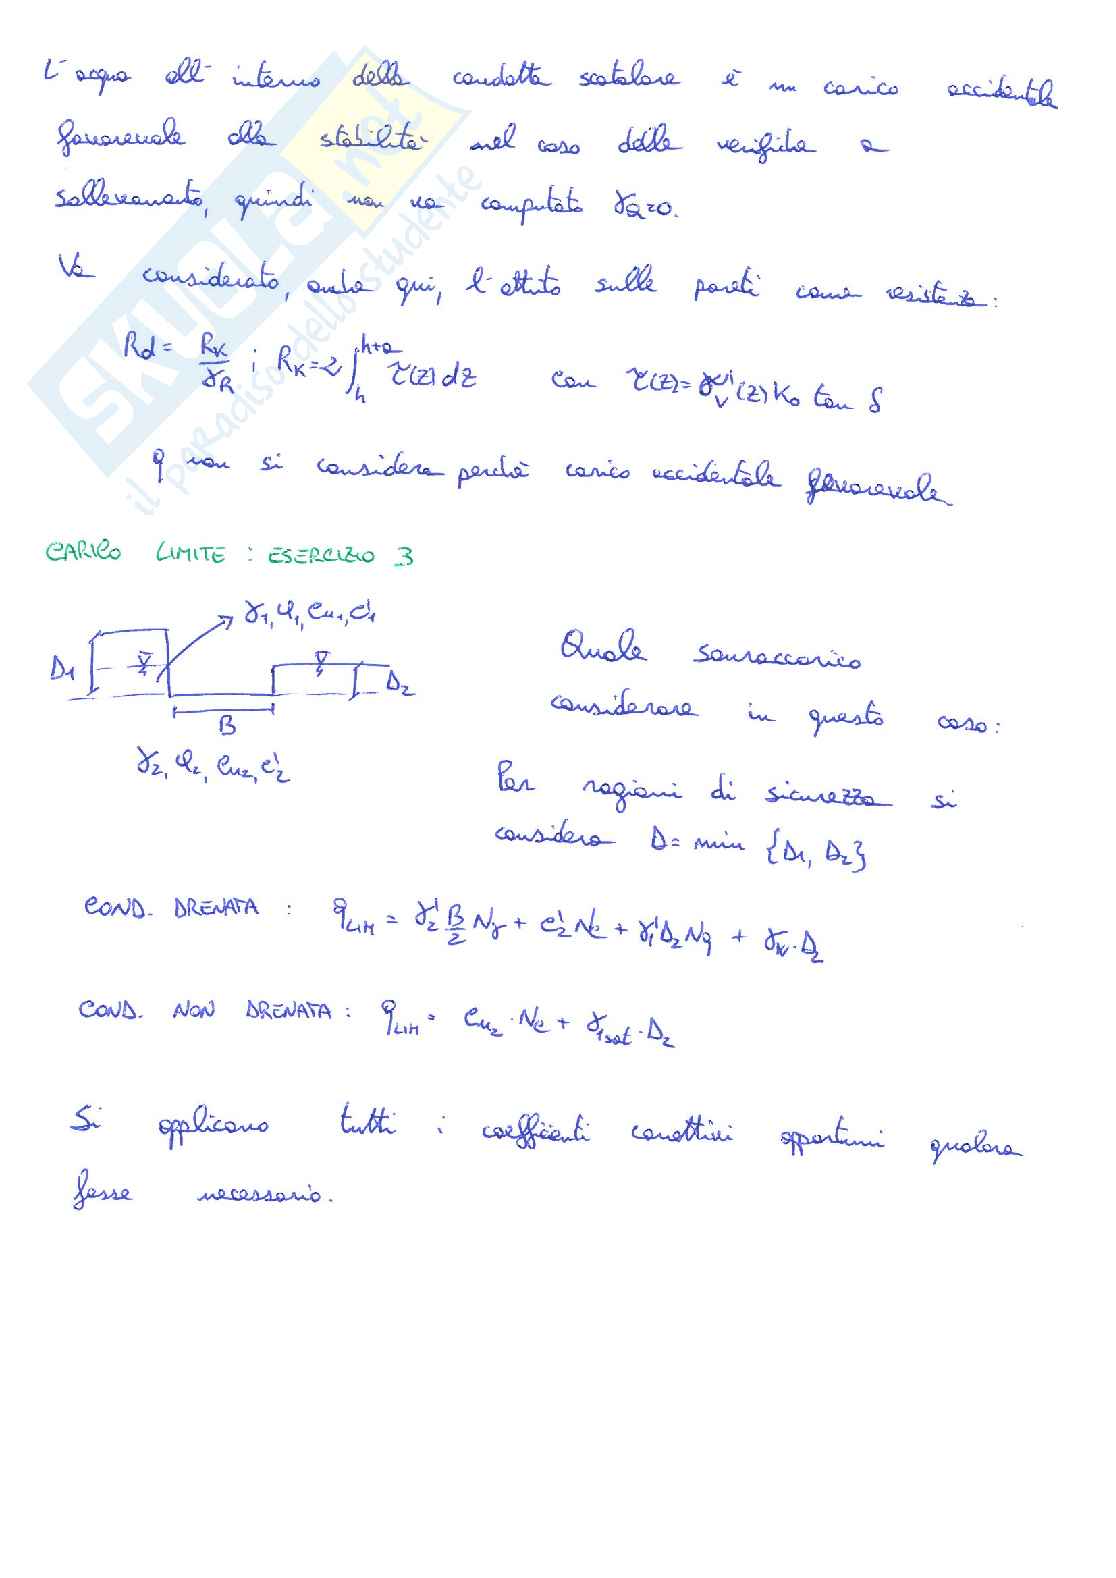 L'acqua all'interno della condotta scatolare è un carico accidentale
favorevole alla stabilità nel caso delle verifiche a
sollevamento, quindi non va computato γQ=0.
Va considerato, anche qui, l'attrito sulle pareti come resistenza:
Rd = RK/γR ; RK = 2 ∫h^(h+a) τ(z) dz con τ(z) = σ'v(z) K0 tan δ
q non si considera perchè carico accidentale favorevole
CARICO LIMITE : ESERCIZIO 3
γ1, φ1, Cu1, C'1
D1
D2
B
γ2, φ2, Cu2, C'2
Quale sovraccarico
considerare in questo caso:
Per ragioni di sicurezza si
considera D = min {D1, D2}
COND. DRENATA : qLIM = γ'2 B/2 Nγ + C'2 Nc + γ'1 D2 Nq + γw · D2
COND. NON DRENATA : qLIM = Cu2 · Nc + γ1sat · D2
Si applicano tutti i coefficienti correttivi opportuni qualora
fosse necessario.
SKUOLA.net
il paradiso dello studente